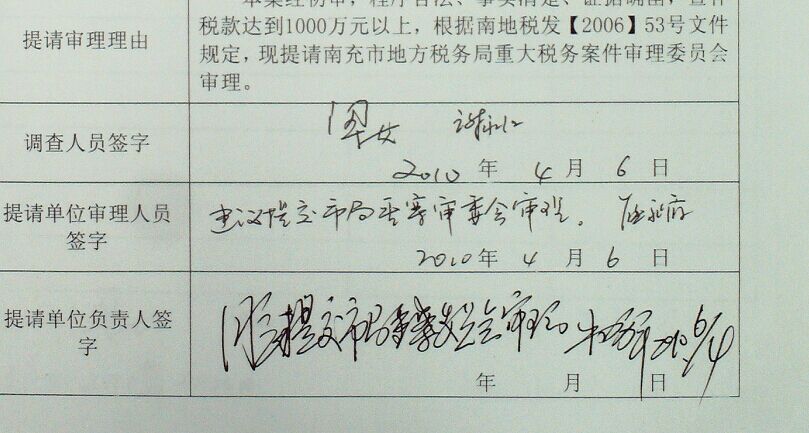 本案经初审，程序合法、事实清楚、证据确凿，查补
提请审理理由
税款达到1000万元以上，根据南地税发【2006】53号文件
规定，现提请南充市地方税务局重大税务案件审理委员会
审理。
调查人员签字
2010 年 4 月 6 日
提请单位审理人员
签字
建议提交市局重案审委会审理。
2010 年 4 月 6 日
提请单位负责人签
字
同意提交市局重案委员会审理。
年 月 日